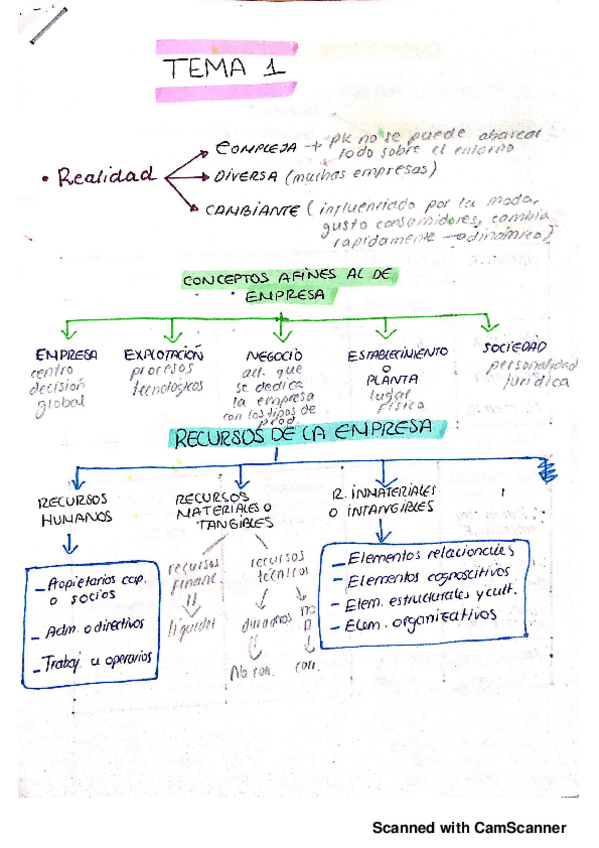 TEMA 1
• Realidad
COMPLEJA → pk no se puede abarcar
todo sobre el entorno
DIVERSA (muchas empresas)
CAMBIANTE (influenciado por la moda,
gusto consumidores, cambia
rapidamente → dinámico)
CONCEPTOS AFINES AL DE
EMPRESA
EMPRESA
centro
decisión
global
EXPLOTACIÓN
procesos
tecnológicos
NEGOCIO
act. que
se dedica
la empresa
con los tipos de
prod.
ESTABLECIMIENTO
O
PLANTA
lugar
físico
SOCIEDAD
personalidad
jurídica
RECURSOS DE LA EMPRESA
RECURSOS
HUMANOS
- Propietarios cap.
o socios
- Adm. o directivos
- Trabaj. u operarios
RECURSOS
MATERIALES O
TANGIBLES
recursos
financ.
liquidez
recursos
técnicos
duraderos
no
D
No corr.
corr.
R. INMATERIALES
O INTANGIBLES
- Elementos relacionales
- Elementos cognoscitivos
- Elem. estructurales y cult.
- Elem. organizativos
Scanned with CamScanner